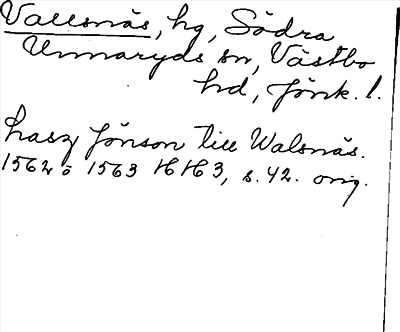 Vallsnäs, hg, Södra
Unnaryds sn, Västbo
hd, Jönk. l.
hasz Jönson till Walsnäs.
1562 o 1563 HH3, s. 42. orig.